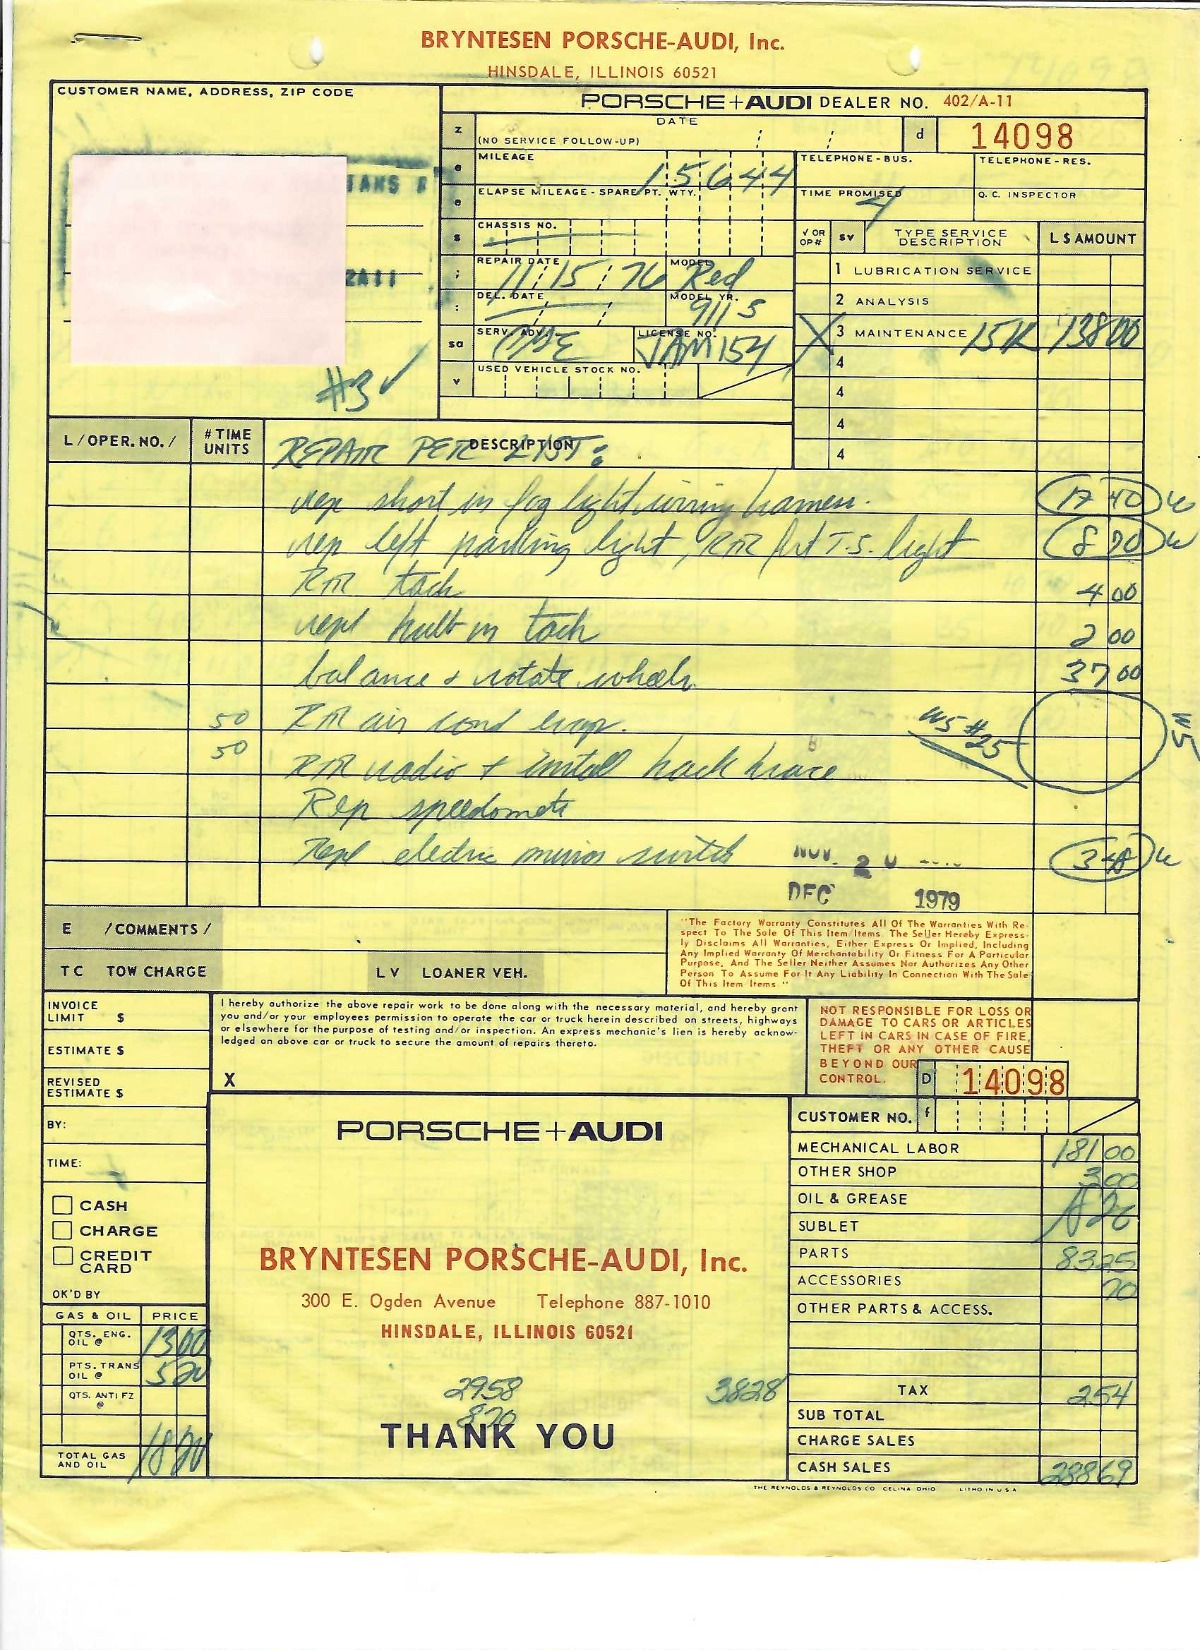 BRYNTESEN PORSCHE-AUDI, Inc.
HINSDALE, ILLINOIS 60521
CUSTOMER NAME, ADDRESS, ZIP CODE
PORSCHE+AUDI DEALER NO. 402/A-11
z DATE / / d 14098
(NO SERVICE FOLLOW-UP)
MILEAGE 15644 TELEPHONE-BUS. TELEPHONE-RES.
e ELAPSE MILEAGE - SPARE PT. WTY. TIME PROMISED 4 Q.C. INSPECTOR
s CHASSIS NO. √ OR OP# sv TYPE SERVICE DESCRIPTION L$AMOUNT
REPAIR DATE 11/15/76 MODEL Red
1 LUBRICATION SERVICE
DEL. DATE / / MODEL YR. 911S
2 ANALYSIS
sa SERV. ADV. LICENSE NO. JAM154
X 3 MAINTENANCE 15K 138 00
v USED VEHICLE STOCK NO.
4
4
4
4
#3 ✓
L/OPER. NO./ # TIME UNITS DESCRIPTION
REPAIR PER LIST:
rep short in fog light wiring harness. 17 40 W
rep left parking light, RR frt T.S. light 8 70 W
RR tach 4 00
repl bulb in tach 2 00
balance + rotate wheels 37 00
50 RR air cond evap. WS #25 WS
50 RR radio + install back brace
Rep speedometer
Repl electric mirror switch 3 48 W
NOV. 20
DEC 1979
E /COMMENTS/
TC TOW CHARGE LV LOANER VEH.
"The Factory Warranty Constitutes All Of The Warranties With Re-
spect To The Sale Of This Item/Items. The Seller Hereby Express-
ly Disclaims All Warranties, Either Express Or Implied, Including
Any Implied Warranty Of Merchantability Or Fitness For A Particular
Purpose, And The Seller Neither Assumes Nor Authorizes Any Other
Person To Assume For It Any Liability In Connection With The Sale
Of This Item Items."
INVOICE LIMIT $
ESTIMATE $
REVISED ESTIMATE $
BY:
TIME:
I hereby authorize the above repair work to be done along with the necessary material, and hereby grant
you and/or your employees permission to operate the car or truck herein described on streets, highways
or elsewhere for the purpose of testing and/or inspection. An express mechanic's lien is hereby acknow-
ledged on above car or truck to secure the amount of repairs thereto.
X
NOT RESPONSIBLE FOR LOSS OR
DAMAGE TO CARS OR ARTICLES
LEFT IN CARS IN CASE OF FIRE,
THEFT OR ANY OTHER CAUSE
BEYOND OUR
CONTROL.
D 14098
CASH
CHARGE
CREDIT CARD
OK'D BY
GAS & OIL PRICE
QTS. ENG. OIL @ 13 00
PTS. TRANS OIL @ 5 20
QTS. ANTI FZ @
TOTAL GAS AND OIL 18 20
PORSCHE+AUDI
BRYNTESEN PORSCHE-AUDI, Inc.
300 E. Ogden Avenue Telephone 887-1010
HINSDALE, ILLINOIS 60521
2958 3828
870
THANK YOU
CUSTOMER NO. f
MECHANICAL LABOR 181 00
OTHER SHOP 3 00
OIL & GREASE 18 20
SUBLET
PARTS 83 25
ACCESSORIES 70
OTHER PARTS & ACCESS.
TAX 2 54
SUB TOTAL
CHARGE SALES
CASH SALES 288 69
THE REYNOLDS & REYNOLDS CO. CELINA, OHIO LITHO IN U.S.A.